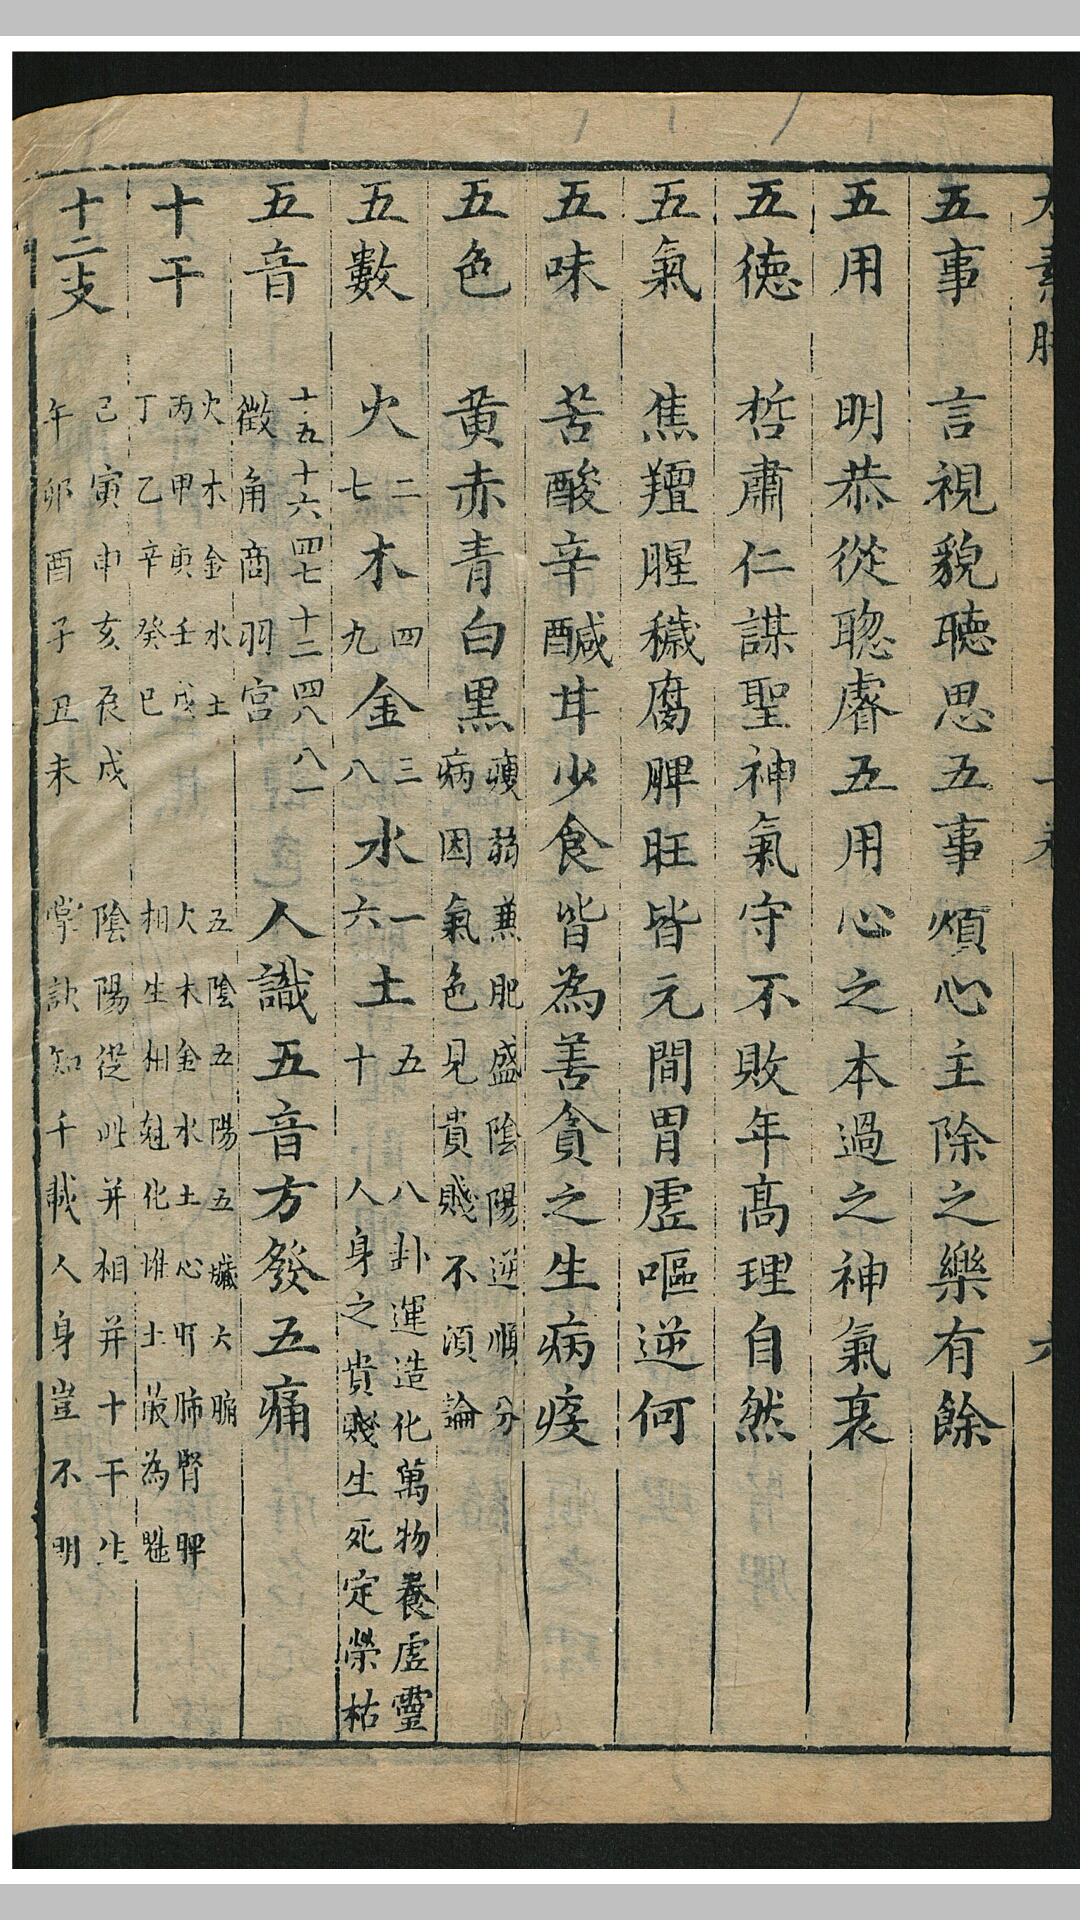 五事 言視貌聽思五事煩心主除之樂有餘
五用 明恭從聦睿五用心之本過之神氣衰
五德 哲肅仁謀聖神氣守不敗年高理自然
五氣 焦羶腥穢腐脾旺皆元間胃虛嘔逆何
五味 苦酸辛鹹甘少食皆為善貪之生病疾
五色 黃赤青白黑
瘦弱兼肥盛陰陽逆順分
病因氣色見貴賤不須論
五數 火二七木四九金三八水一六土五十
八卦運造化萬物養虛靈
人身之貴賤生死定榮枯
五音
十五 十六 四七 十二 四八 八一
徵角商羽宮
人識五音方發五痛
十干
火木金水土
丙甲庚壬戊
丁乙辛癸巳
五陰五陽五臟六腑
火木金水土心肝肺腎脾
相生相尅化惟土最為
十二支
己寅申亥辰戌
午卯酉子丑未
陰陽從此并相并十干生
掌訣知千載人身豈不明